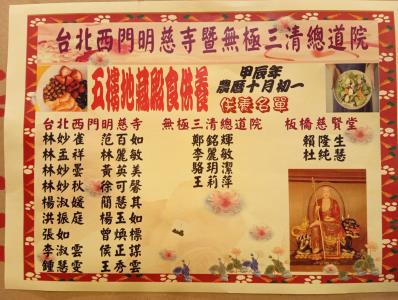 台北西門明慈寺暨無極三清總道院
五樓地藏殿食供養
甲辰年
農曆十月初一
供養名單
台北西門明慈寺 無極三清總道院 板橋慈賢堂
林妙雀 范百如 鄭銘輝 賴隆生
林孟祥 林麗敏 李麗敏 杜純慧
林妙雲 黃英美 駱玥潔
林妙秋 徐可馨 王莉萍
楊淑媛 簡慧其
洪振庭 楊玉如
張如 曾煥標
李淑雲 林王謀
鍾慧雯 侯秀雲